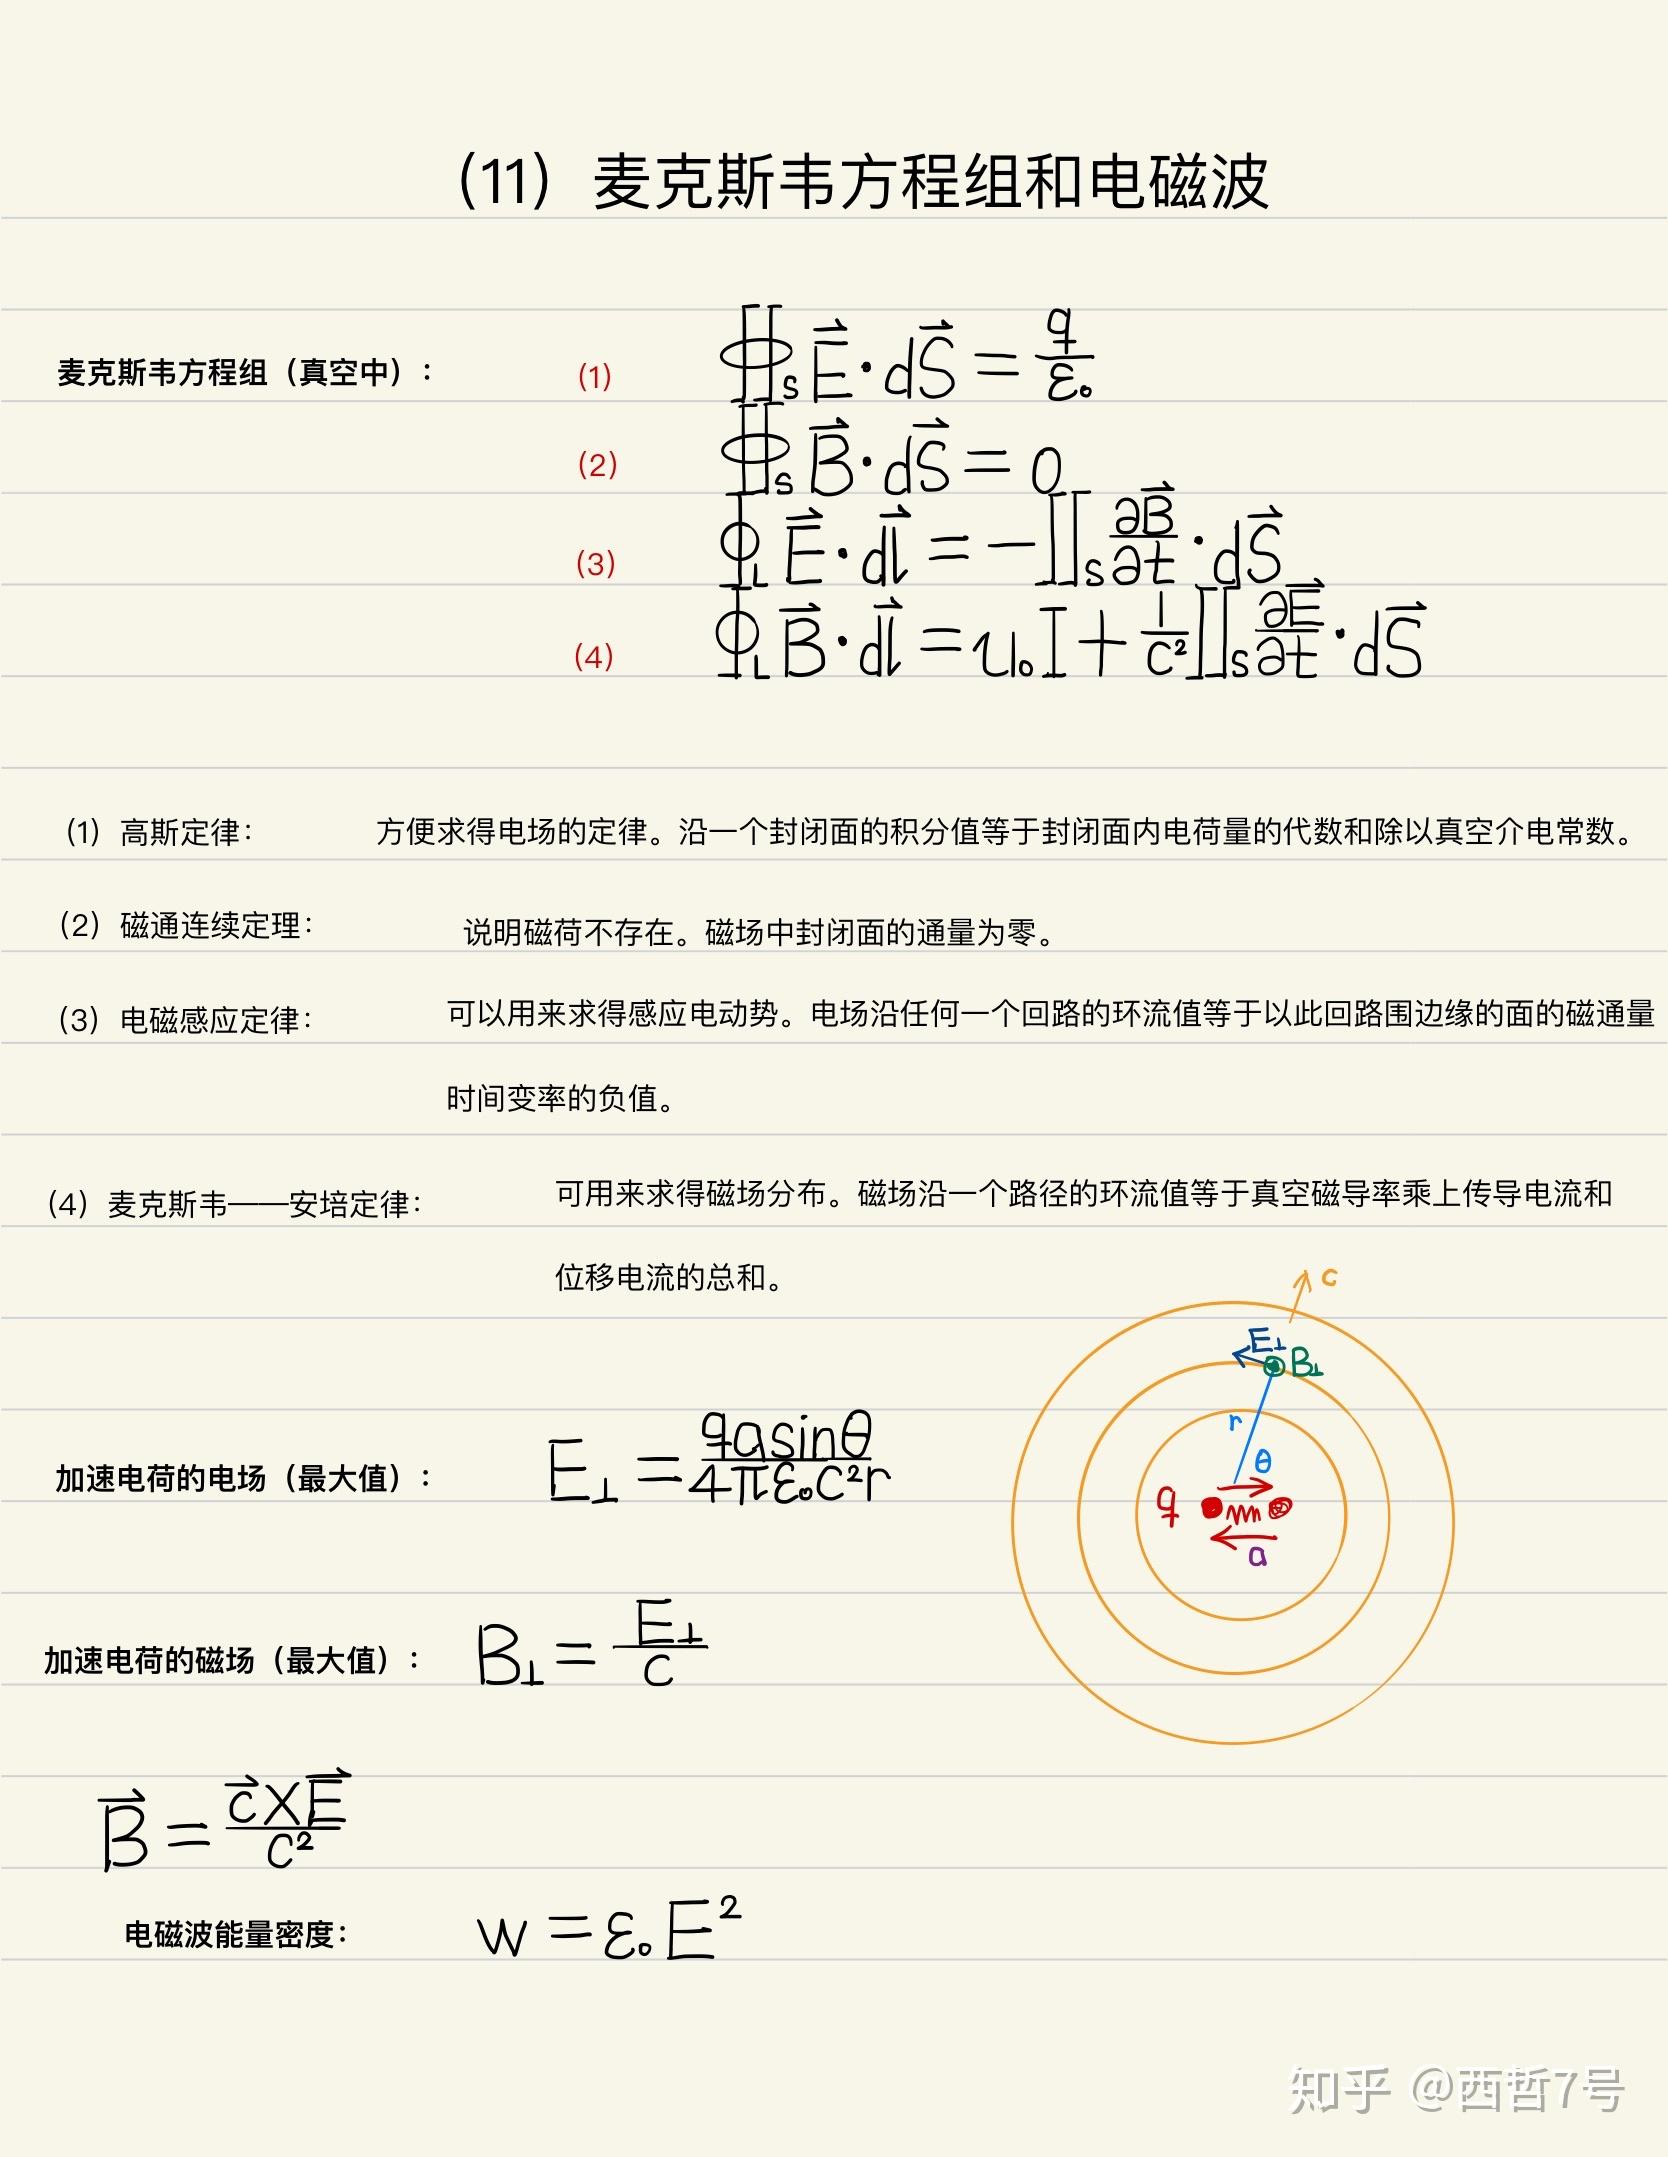 （11）麦克斯韦方程组和电磁波
麦克斯韦方程组（真空中）：
(1) ∯ₛ E⃗·dS⃗ = q/ε₀
(2) ∯ₛ B⃗·dS⃗ = 0
(3) ∮_L E⃗·dl⃗ = −∬ₛ ∂B⃗/∂t·dS⃗
(4) ∮_L B⃗·dl⃗ = u₀I + 1/c² ∬ₛ ∂E⃗/∂t·dS⃗
（1）高斯定律： 方便求得电场的定律。沿一个封闭面的积分值等于封闭面内电荷量的代数和除以真空介电常数。
（2）磁通连续定理： 说明磁荷不存在。磁场中封闭面的通量为零。
（3）电磁感应定律： 可以用来求得感应电动势。电场沿任何一个回路的环流值等于以此回路围边缘的面的磁通量
时间变率的负值。
（4）麦克斯韦——安培定律： 可用来求得磁场分布。磁场沿一个路径的环流值等于真空磁导率乘上传导电流和
位移电流的总和。
c
E⊥
B⊥
r
θ
q
a
加速电荷的电场（最大值）： E⊥ = qasinθ/4πε₀c²r
加速电荷的磁场（最大值）： B⊥ = E⊥/c
B⃗ = c⃗×E⃗/c²
电磁波能量密度： w = ε₀E²
知乎 @西哲7号